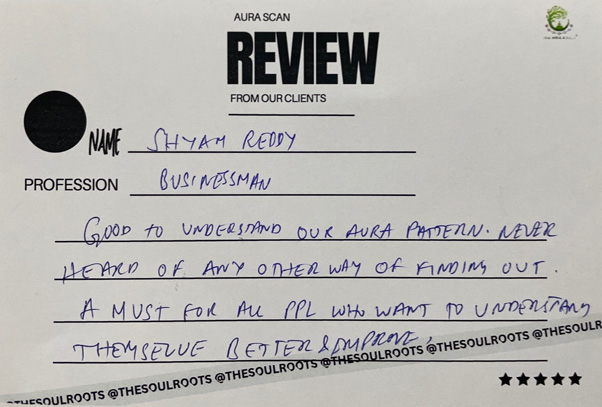 AURA SCAN
REVIEW
FROM OUR CLIENTS
NAME SHYAM REDDY
PROFESSION BUSINESSMAN
GOOD TO UNDERSTAND OUR AURA PATTERN. NEVER
HEARD OF ANY OTHER WAY OF FINDING OUT.
A MUST FOR ALL PPL WHO WANT TO UNDERSTAND
THEMSELVE BETTER & IMPROVE.
@THESOULROOTS @THESOULROOTS @THESOULROOTS @THESOULROOTS @THESOULROOTS @THESOULR